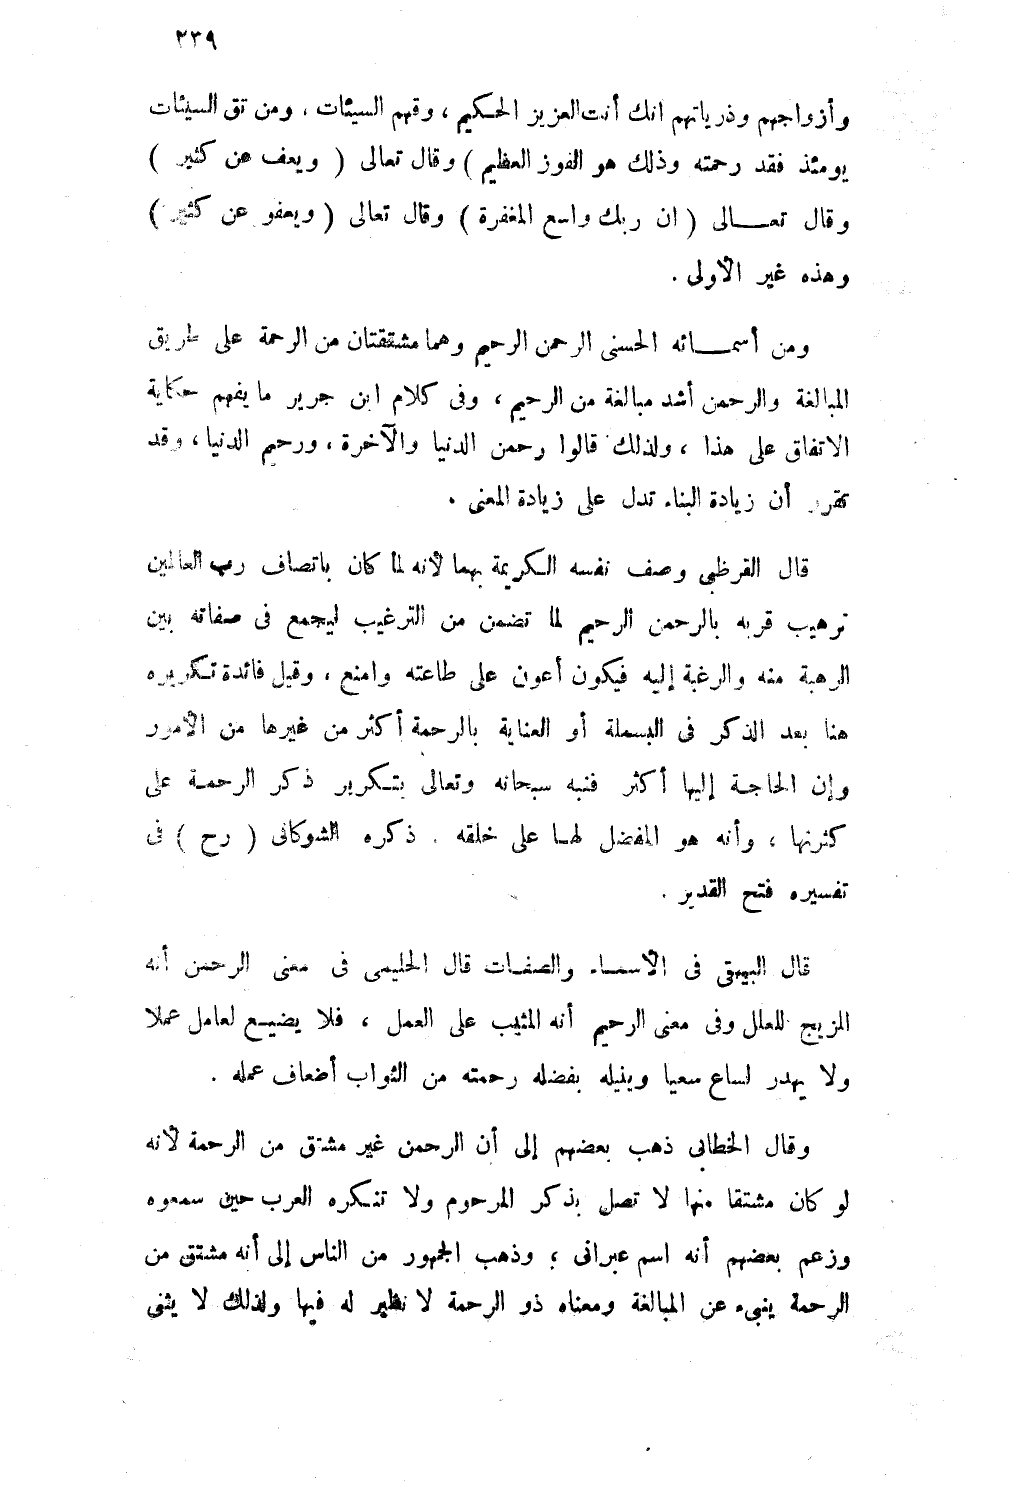 ٢٣٩
وأزواجهم وذرياتهم انك أنت العزيز الحكيم ، وقهم السيئات ، ومن تق السيئات
يومئذ فقد رحمته وذلك هو الفوز العظيم ) وقال تعالى ( ويعف عن كثير )
وقال تعـــالى ( ان ربك واسع المغفرة ) وقال تعالى ( ويعفو عن كثير )
وهذه غير الأولى .
ومن أسمـــائه الحسنى الرحمن الرحيم وهما مشتقتان من الرحمة على طريق
المبالغة والرحمن أشد مبالغة من الرحيم ، وفى كلام ابن جرير ما يفهم حكاية
الاتفاق على هذا ، ولذلك قالوا رحمن الدنيا والآخرة ، ورحيم الدنيا ، وقد
تقرر أن زيادة البناء تدل على زيادة المعنى .
قال القرظبى وصف نفسه الكريمة بهما لأنه لما كان باتصاف رب العالمين
ترهيب قربه بالرحمن الرحيم لما تضمن من الترغيب ليجمع فى صفاته بين
الرهبة منه والرغبة إليه فيكون أعون على طاعته وامنع ، وقيل فائدة تكريره
هنا بعد الذكر فى البسملة أو العناية بالرحمة أكثر من غيرها من الأمور
وإن الحاجة إليها أكثر فنبه سبحانه وتعالى بتكرير ذكر الرحمة على
كثرتها ، وأنه هو المفضل لها على خلقه . ذكره الشوكانى ( رح ) فى
تفسيره فتح القدير .
قال البيهقى فى الأسماء والصفات قال الحليمى فى معنى الرحمن أنه
المزيج للعلل وفى معنى الرحيم أنه المثيب على العمل ، فلا يضيع لعامل عملا
ولا يهدر لساع سعيا وينيله بفضله رحمته من الثواب أضعاف عمله .
وقال الخطابى ذهب بعضهم إلى أن الرحمن غير مشتق من الرحمة لأنه
لو كان مشتقا منها لا تصل بذكر المرحوم ولا تنكره العرب حين سمعوه
وزعم بعضهم أنه اسم عبرانى ؛ وذهب الجمهور من الناس إلى أنه مشتق من
الرحمة ينبىء عن المبالغة ومعناه ذو الرحمة لا نظير له فيها ولذلك لا يثنى